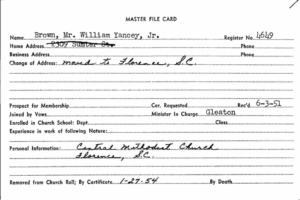 MASTER FILE CARD
Name Brown, Mr. William Yancey, Jr. Register No. 4649
Home Address 2309 Sumter St. Phone
Business Address Phone
Change of Address: moved to Florence, S.C.
Prospect for Membership Cer. Requested Rec'd. 6-3-51
Joined by Vows Minister In Charge Gleaton
Enrolled in Church School: Dept. Class
Experience in work of following Nature:
Personal Information: Central Methodist Church
Florence, S.C.
Removed from Church Roll; By Certificate 1-27-54 By Death